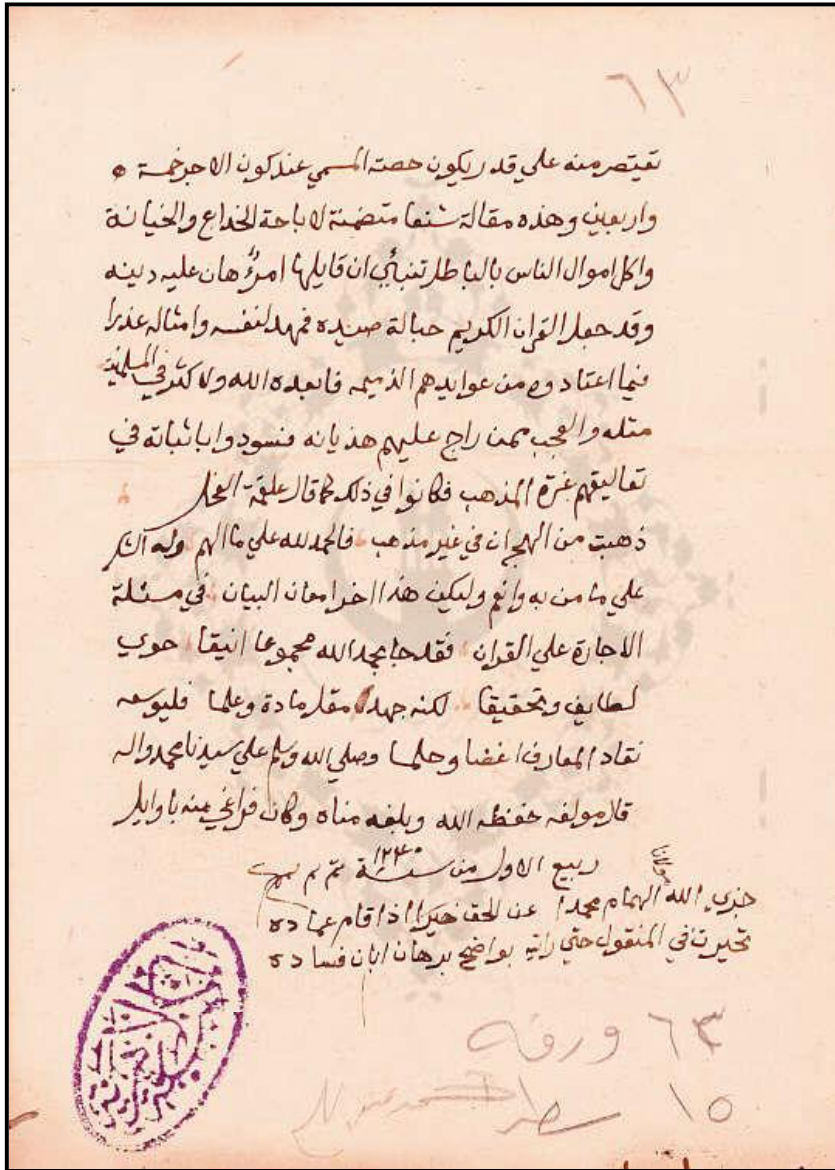 ٦٣
تقيتصر منه علي قدر يكون حصته المسمي عند كون الاجر خمسة ه
واربعين وهذه مقالة شنعا متضمنة لاباحة الخداع والخيانة
واكل اموال الناس بالباطل تنبائي ان قايلها امرؤ هان عليه دينه
وقد جعل القران الكريم حبالة صيده فمهد لنفسه وامثاله عذرا
فيما اعتادوه من عوايدهم الذميمه فابعده الله ولا كثر في المسلمين
مثله والعجب ممن راج عليهم هذيانه فسودوا باثباته في
تعاليقهم غرة المذهب فكانوا في ذلك كما قال علقمة الفحل
ذهبت من الهجران في غير مذهب فالحمد لله علي ما الهم وله الشكر
علي ما من به وانعم وليكن هذا اخر امعان البيان في مسئلة
الاجارة علي القران فقد جا بحمد الله مجموعا انيقا حوي
لطايف وتحقيقا لكنه جهد مقل مادة وعلما فليوسعه
نقاد المعارف اغضا وحلما وصلي الله وسلم علي سيدنا محمد واله
قال مولفه حفظه الله وبلغه مناه وكان فراغي منه باوايل
ربيع الاول من سنة ١٢٤٠ تم تم تم
جزي الله مولانا الهمام محمدا عن الحق خيرا اذ اقام عماده
تحيرت في المنقول حتي راته بواضح برهان ابان فساده
٦٣ ورقه
١٥ سطرا